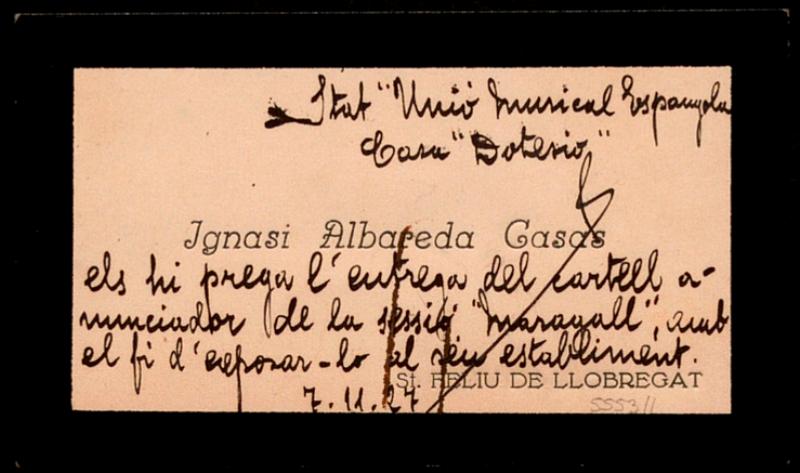 Stat "Unió Musical Espanyola
Casa "Dotesio"
Ignasi Albareda Casas
els hi prega l'entrega del cartell a-
nunciador de la sessió "Maragall", amb
el fi d'exposar-lo al séu establiment.
St. FELIU DE LLOBREGAT
7.11.27
5553/1